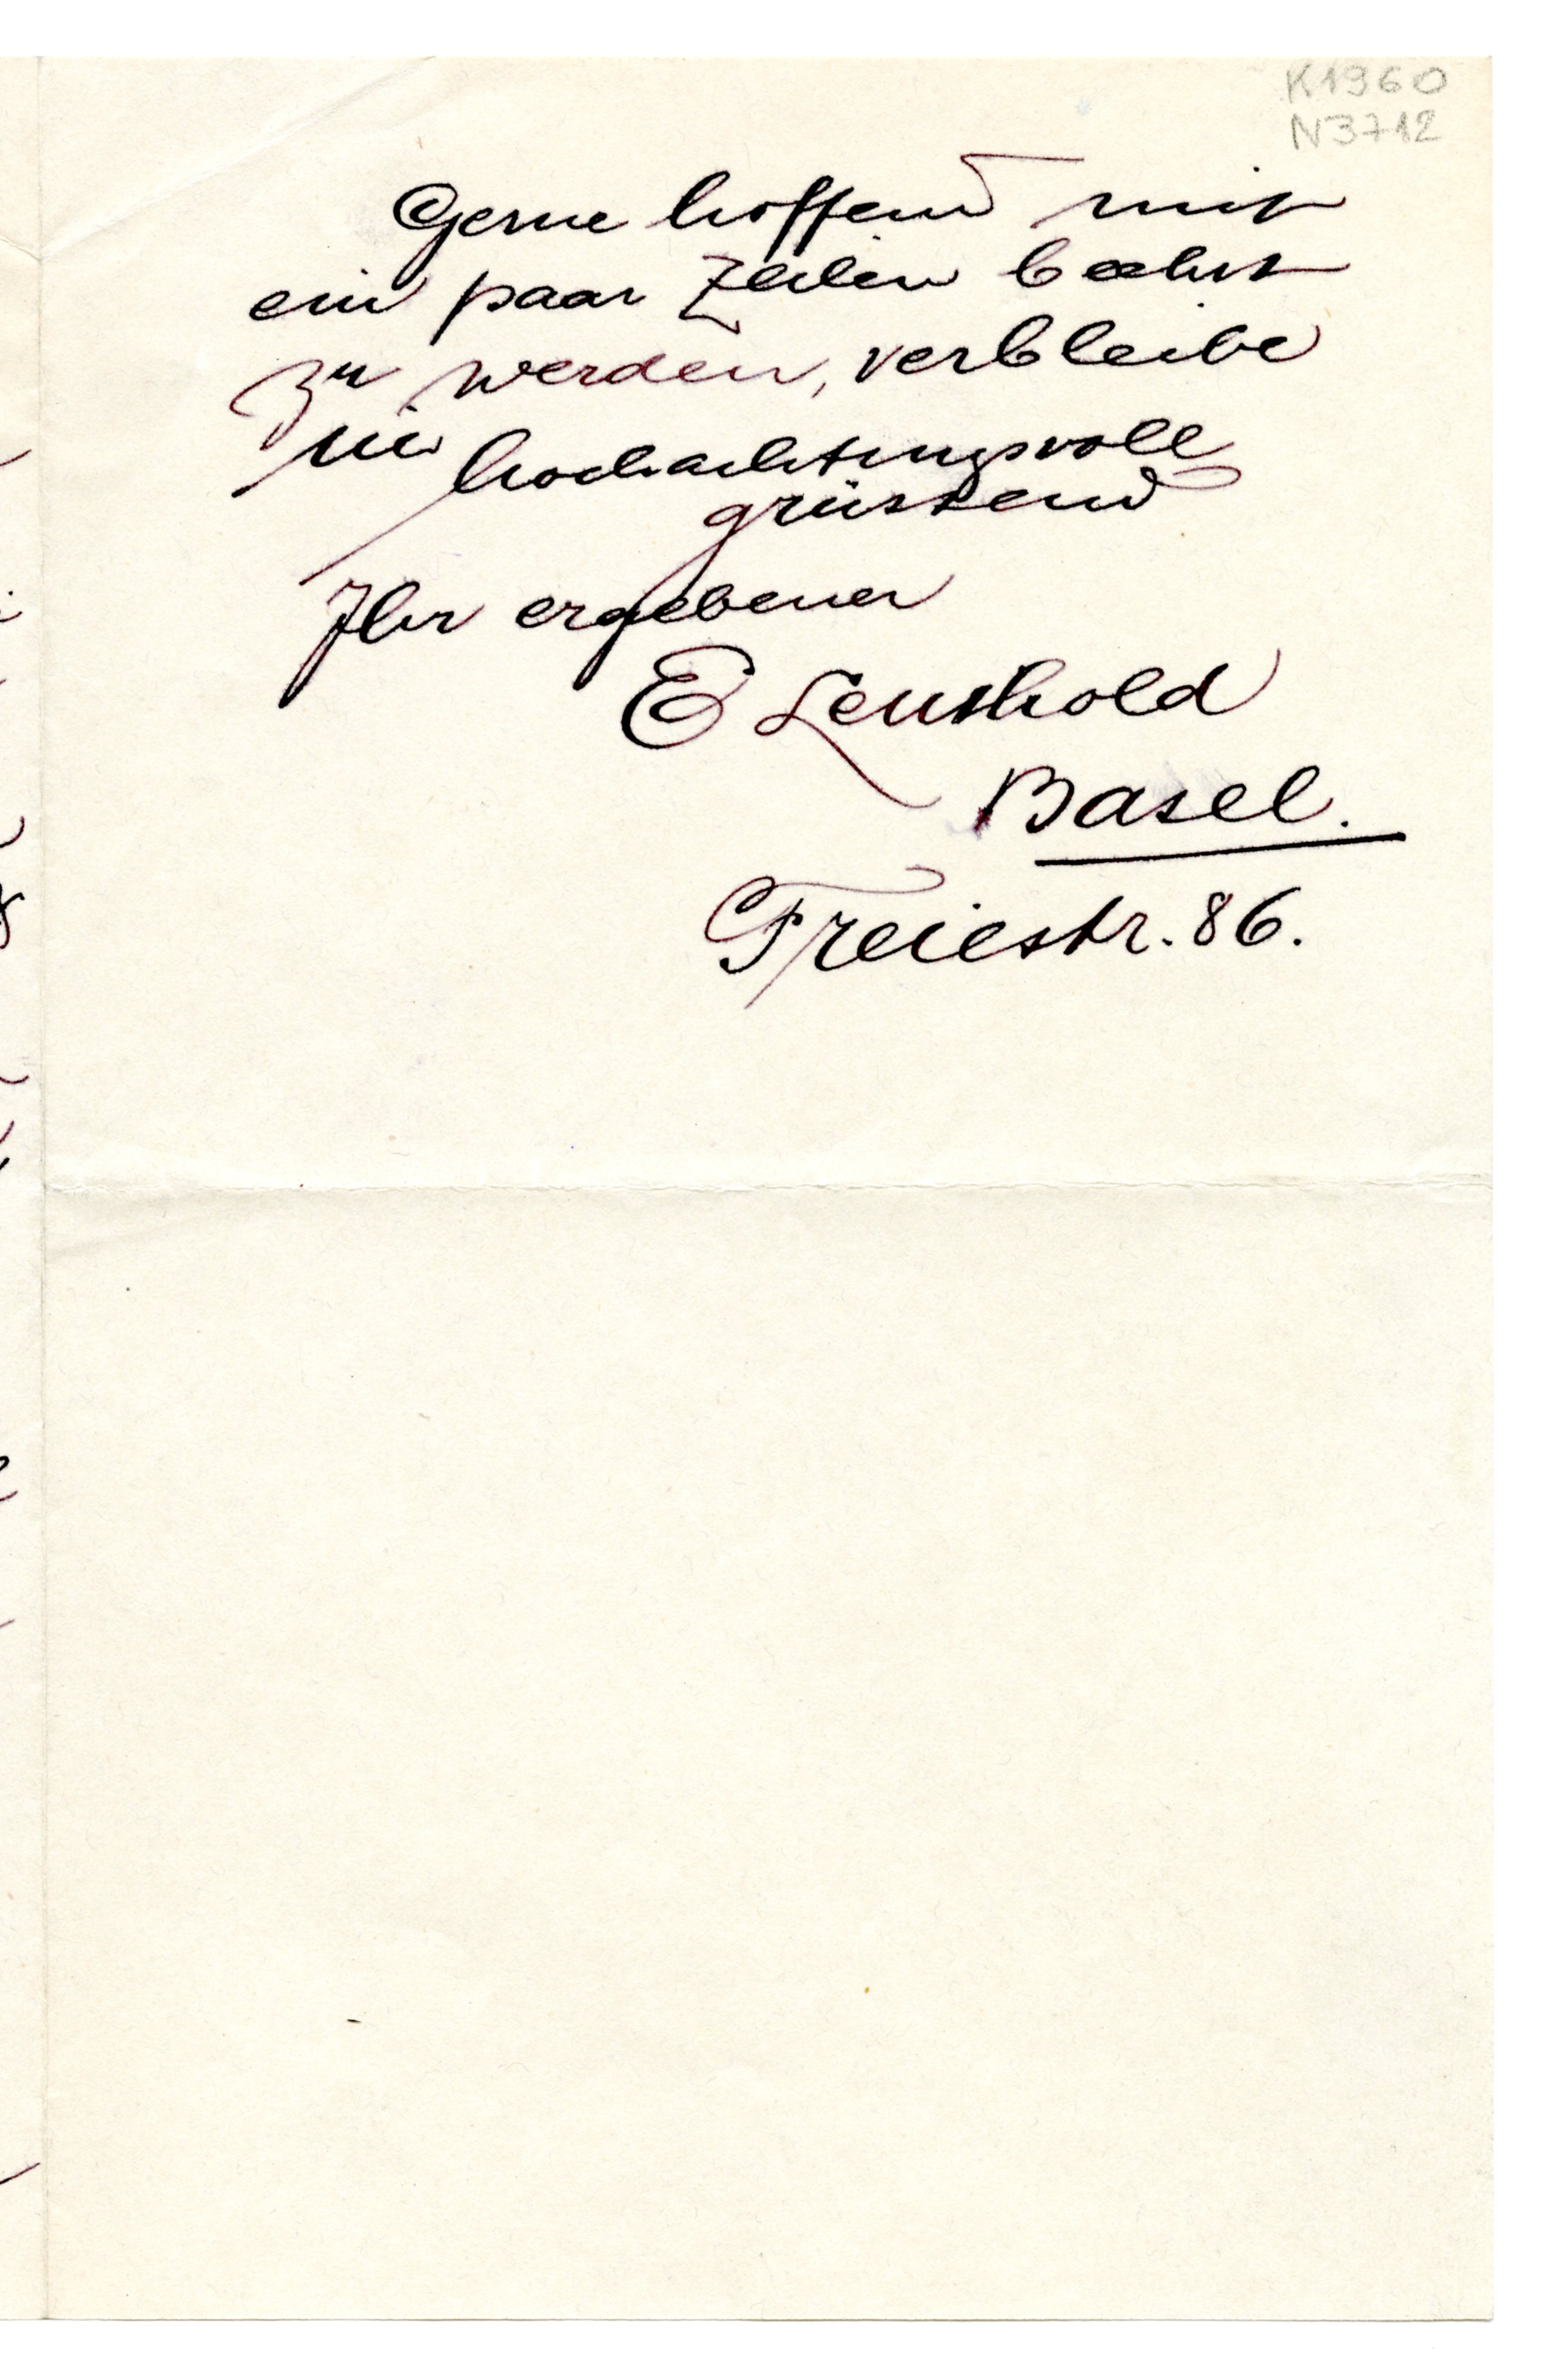 K1960
N3712
Gerne hoffend mit
ein paar Zeilen beehrt
zu werden, verbleibe
hochachtungsvoll
grüssend
Ihr ergebener
E Leuthold
Basel.
Freiestr. 86.